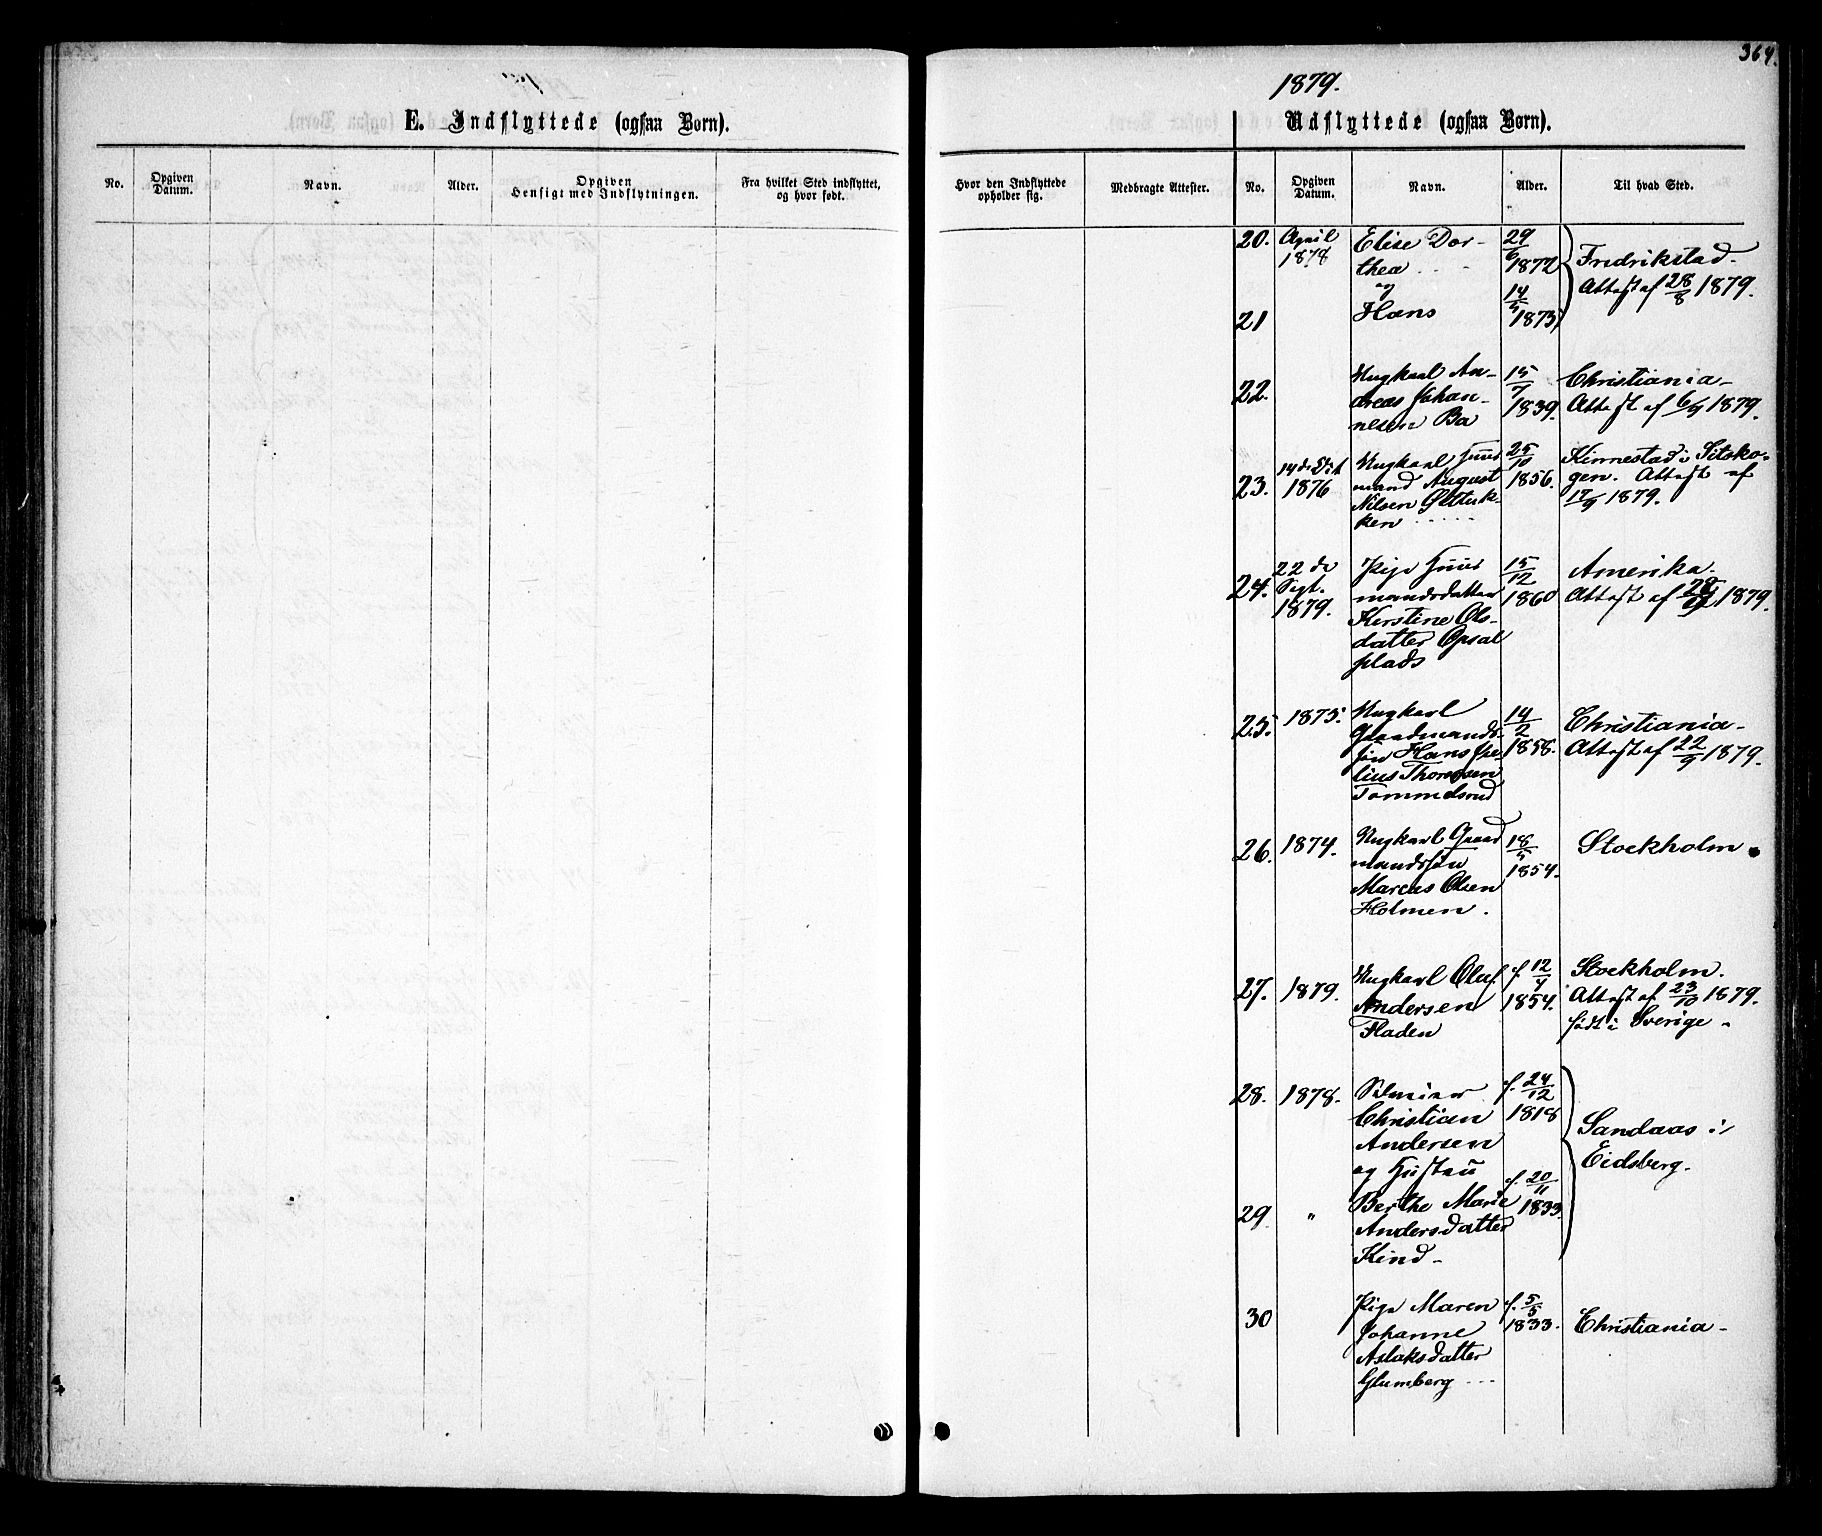 364.
1879.
E. Indflyttede (ogsaa Børn).
Udflyttede (ogsaa Børn).
No.
Opgiven Datum.
Navn.
Alder.
Opgiven Hensigt med Indflytningen.
Fra hvilket Sted indflyttet, og hvor født.
Hvor den Indflyttede opholder sig.
Medbragte Attester.
No.
Opgiven Datum.
Navn.
Alder.
Til hvad Sted.
20. April 1878 Elise Dorthea og 29/6 1872 Fredrikstad.
Attest af 28/8 1879.
21 Hans 14/5 1873
22. Ungkarl Andreas Johannesen Ba 15/7 1839. Christiania
Attest af 6/9 1879.
23. 14de 1876 Ungkarl Huusmand August Nilsen 25/10 1856. Kinnestad i Sitskogen. Attest af 17/9 1879.
24. 22de Sept. 1879. Pige Huusmandsdatter Kirstine Olsdatter Opsalplads 15/12 1860 Amerika.
Attest af 1879.
25. 1875. Ungkarl Gaardmandssøn Hans Thoresen Tommelsrud 14/2 1858. Christiania
Attest af 22/9 1879.
26. 1874. Ungkarl Gaardmandssøn Marcus Olsen Holmen. 18/5 1854. Stockholm.
27. 1879. Ungkarl Oluf Andersen Fladen f. 12/4 1854. Stockholm.
Attest af 23/10 1879.
født i Sverige
28. 1878. Christian Andersen og Hustru f. 24/12 1818 Sandaas i Eidsberg.
29 " Berthe Marie Andersdatter Kind f. 20/11 1833.
30 Pige Maren Johanne Aslaksdatter Glumberg f. 5/5 1833. Christiania